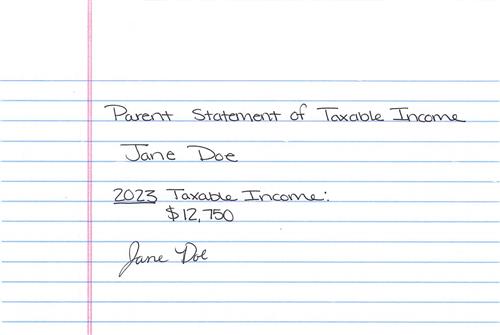 Parent Statement of Taxable Income
Jane Doe
2023 Taxable Income:
$12,750
Jane Doe